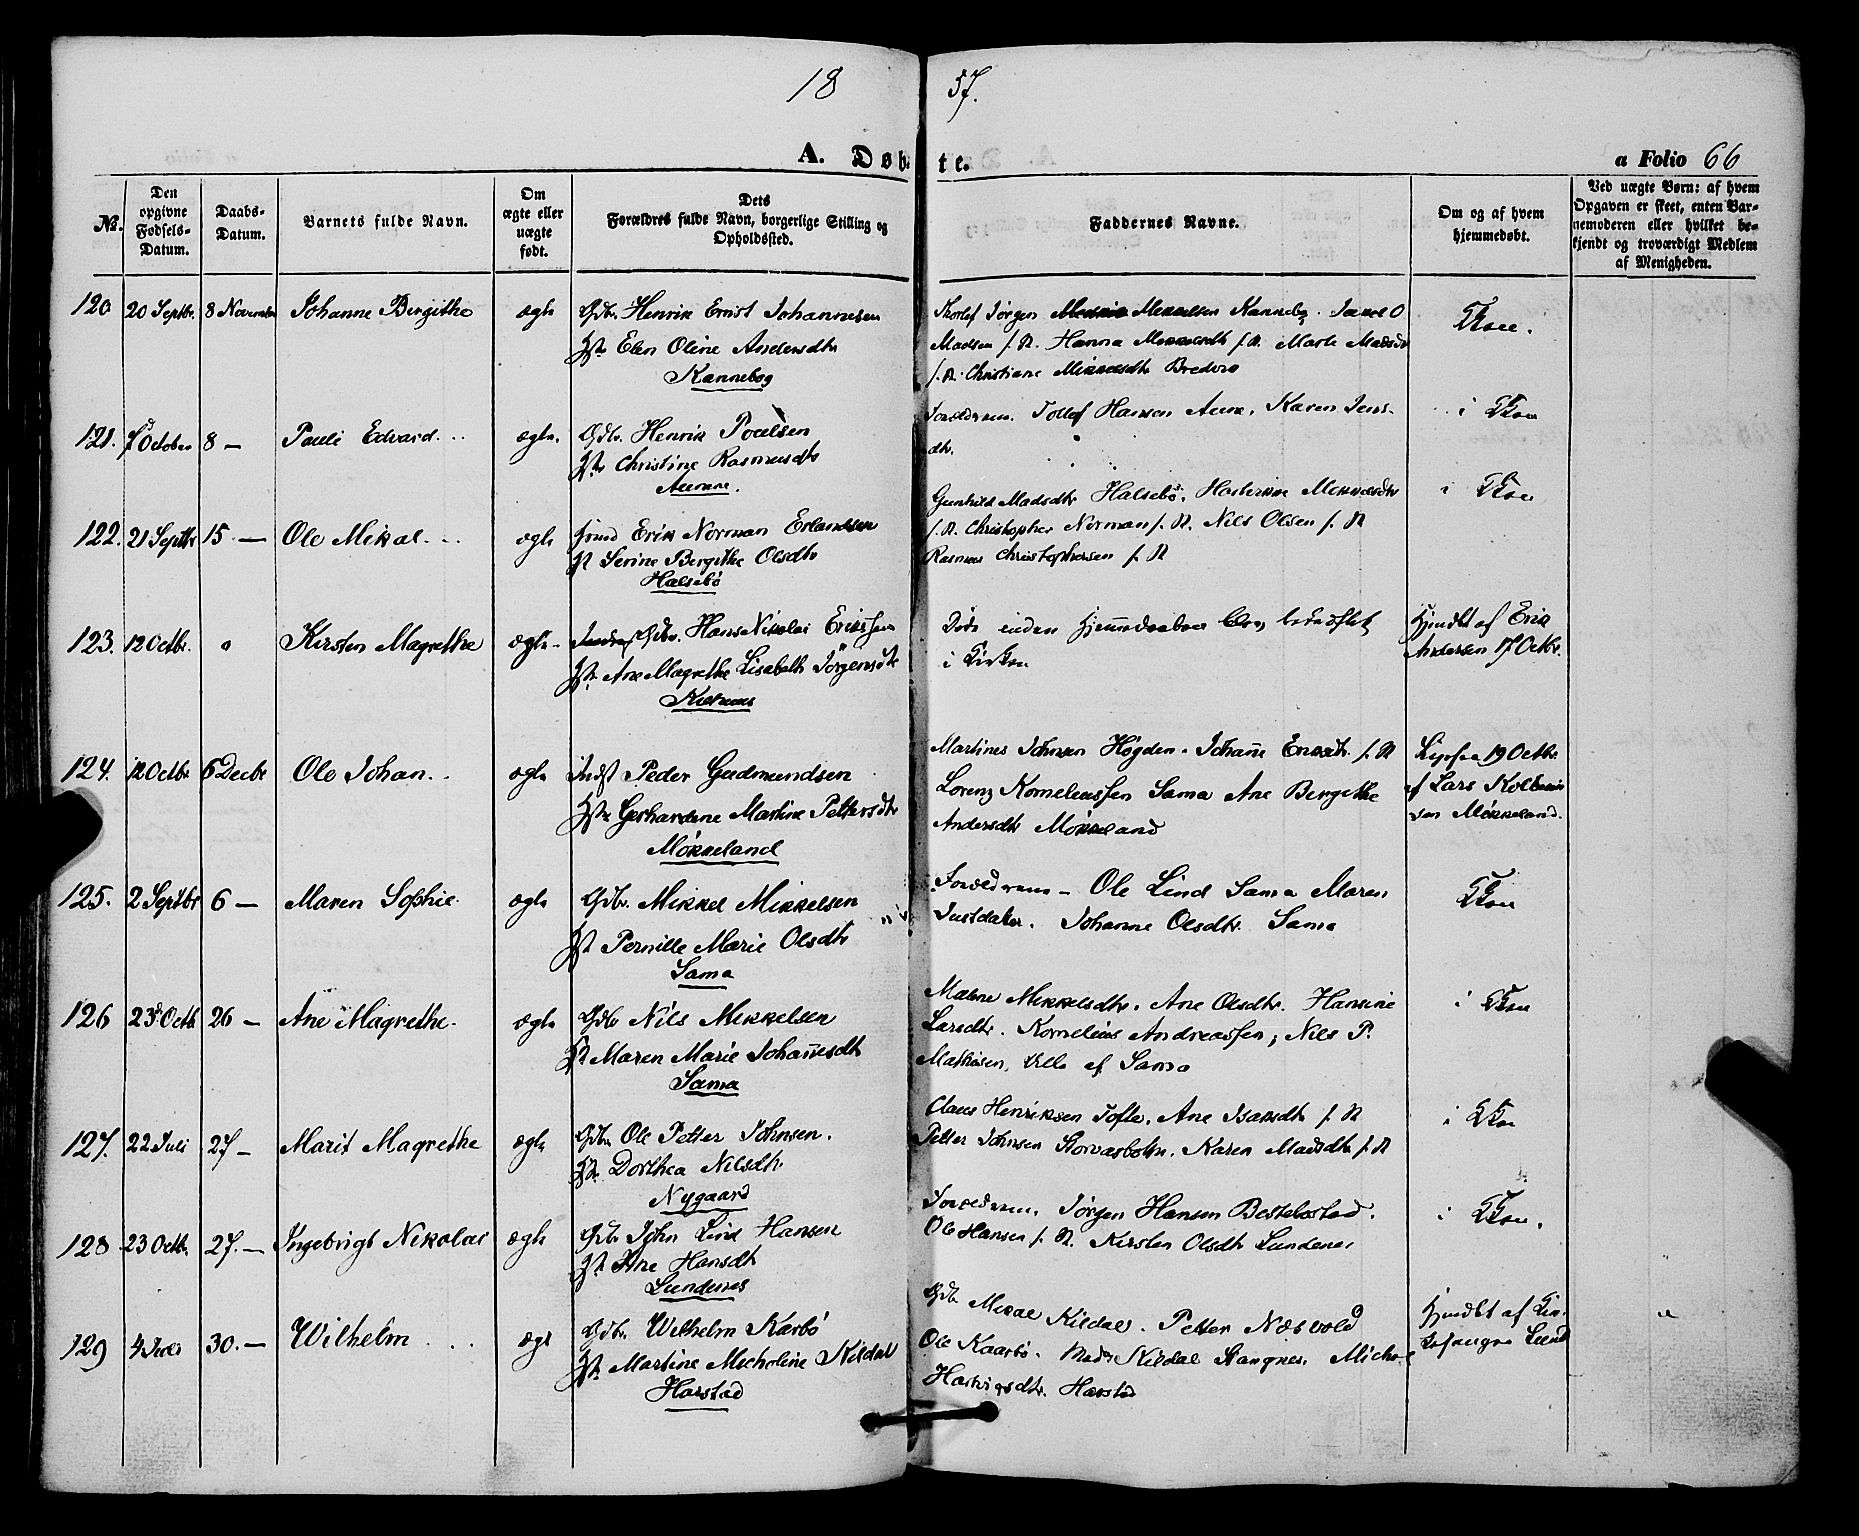 1857.
A. Døbte.
a Folio 66
No.
Den opgivne Fødsels-Datum.
Daabs-Datum.
Barnets fulde Navn.
Om ægte eller uægte født.
Dets Forældres fulde Navn, borgerlige Stilling og Opholdssted.
Faddernes Navne.
Om og af hvem hjemmedøbt.
Ved uægte Børn: af hvem Opgaven er skeet, enten Barnemoderen eller hvilket bekjendt og troværdigt Medlem af Menigheden.
120. 20 Septbr. 8 November Johanne Bergithe ægte
Gdbr. Henrik Ernst Johannesen
Hst. Elen Oline Andersdtr
Kannebog
Jørgen Mekkelsen Kannebog.
Madsen f. St. Hanna Mekkelsdtr f. St. Marte Madsdtr
f. St. Christiane Mikkelsdtr Bredvik
121. 7 October 8 — Pauli Edvard... ægte.
Gdbr. Henrik Poulsen
Hst. Christine Rasmusdtr
Aunne.
Forældrene. Tollef Hansen Aune, Karen Jens-
dtr.
122. 21 Septbr 15 — Ole Mikal... ægte
Erik Norman Erlandsen
Hst Serine Bergithe Olsdtr
Halsebø
Gunhild Madsdtr Halsebø. Mekkelsdtr
f. St. Christopher Norman f. St. Nils Olsen f. St
Rasmus Christophersen f. St
123. 12 Octbr. Kirsten Magrethe ægte
Gdbr. Hans Nikolai Erikssen
Hst. Ane Magrethe Lisabeth Jørgensdtr
Døde inden Hjemmedaaben blev bekræftet
i Kirken
Hjmdbt af Erik
Andersen 17 Octbr.
124. 12 Octbr 6 Decbr Ole Johan.. ægte
Indst Peder Gudmundsen
Hst. Gerhardine Martine Pettersdtr
Møkkeland
Martines Johnsen Høgden. Johanne Eriksdtr. f. St
Lorenz Korneliussen Sama Ane Bergithe
Andersdtr Møkkeland
19 Octbr.
af Lars Kolbein
sen Møkkeland.
125. 2 Septbr 6 — Maren Sophie. ægte
Gdbr. Mikkel Mikkelsen
Hst Pernille Marie Olsdtr
Sama
Forældrene — Ole Lind Sama Maren
Justdater. Johanne Olsdtr. Sama
126 23 Octb 26 — Ane Magrethe. ægte
Gdbr Nils Mekkelsen
Hst Maren Marie Johannesdtr
Sama
Malene Mekkelsdtr. Ane Olsdtr. Hansine
Larsdtr. Kornelius Andreassen, Nils P.
Mathisen, alle af Sama
127. 22 Juli 27 — Marit Magrethe ægte
Gdbr. Ole Petter Johnsen.
Hst. Dorthea Nilsdtr
Nygaard
Claus Henriksen Tofte, Ane Isaksdtr f. St
Petter Johnsen Storvasbotn. Karen Madsdtr f. St
128 23 Octb. 27. — Ingebrigt Nikolai ægte
Gdbr John Lind Hansen
Hst. Ane Hansdtr
Lundenes
Forældrene, Jørgen Hansen Bestebostad.
Ole Hansen f. St. Kirsten Olsdtr Lundenes
129 4 Juli 30. — Wilhelm... ægte
Gdbr. Wilhelm Karbø
Hst. Martine Micholine Kildal
Harstad
Gdbr Mikal Kildal. Petter Næsvold
Ole Kaarbø. Mads Kildal Stangnes.
Hartvigsdtr. Harstad
Hjmdbt af
Lund